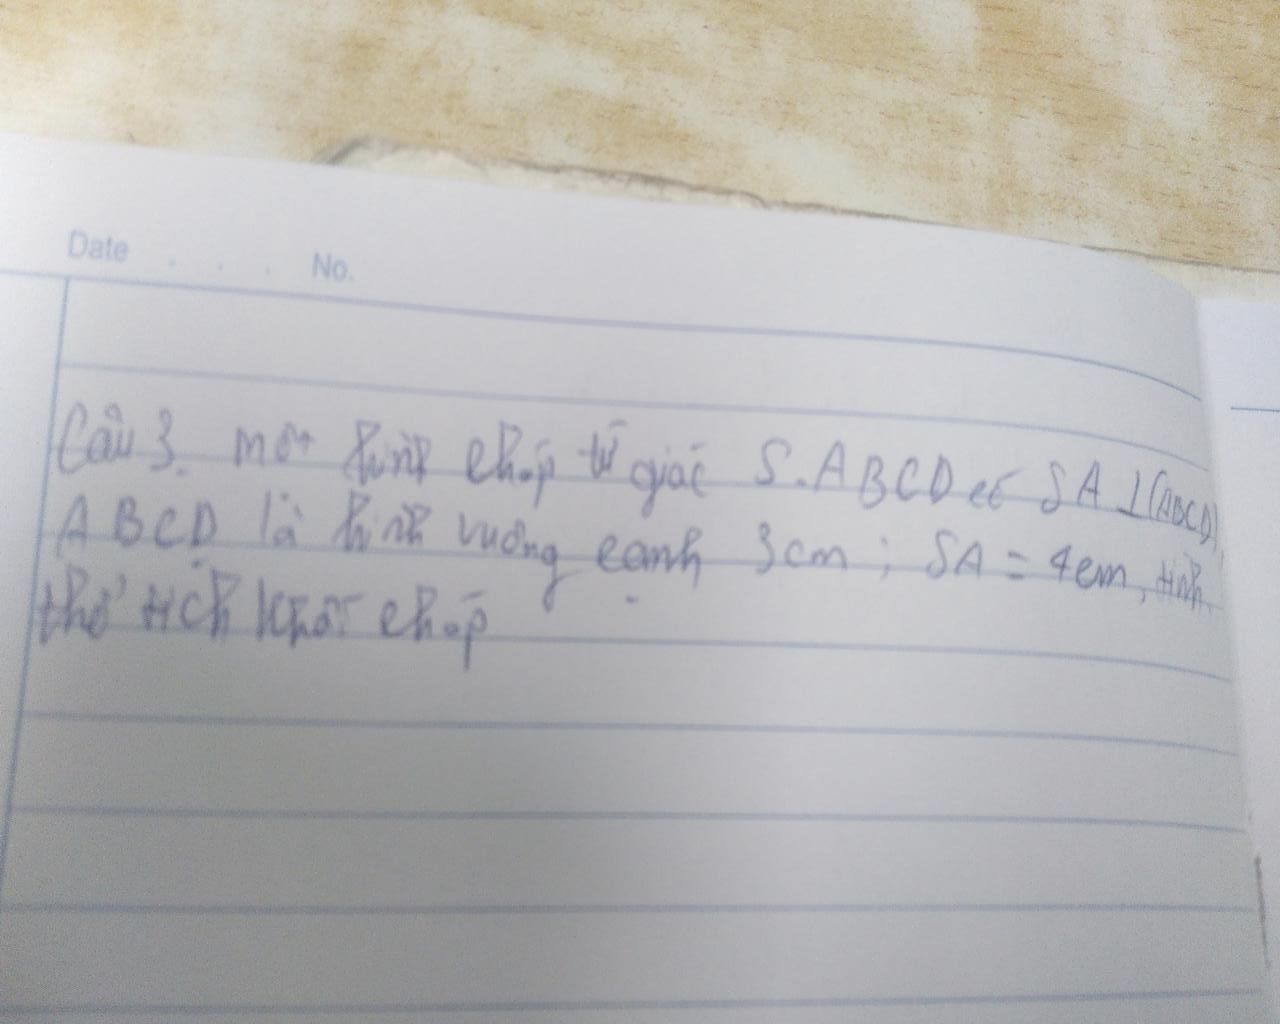 Date . . . No.
Câu 3. một hình chóp tứ giác S.ABCD có SA ⊥ (ABCD),
ABCD là hình vuông cạnh 3cm ; SA = 4cm, tính
thể tích khối chóp